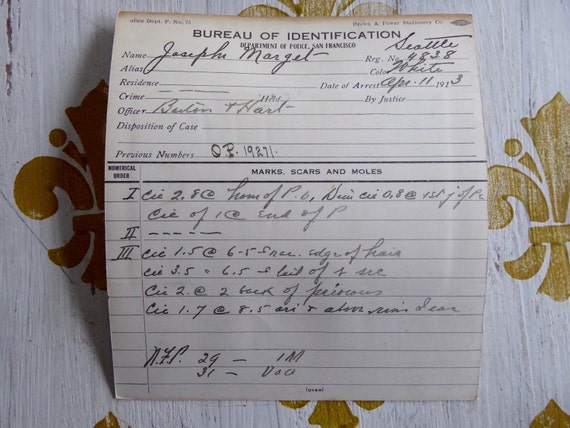 olice Dept. F. No. 76 Brown & Power Stationery Co.
BUREAU OF IDENTIFICATION
DEPARTMENT OF POLICE, SAN FRANCISCO
Seattle
Name Joseph Marget Reg. No. 4838
Alias Color White
Residence — — — — Date of Arrest Apr. 11 1913
Crime Held By Justice
Officer Barton + Hart
Disposition of Case
Previous Numbers O.P. 19271.
NUMERICAL ORDER MARKS, SCARS AND MOLES
I Cic 2.8 @ of P. 0, Dim cic 0.8 @ 1st j of
Cic of 1 @ end of P
II - - - - -
III Cic 1.5 @ 6-5 edge of hair
Cic 3.5 " 6.5 of
Cic 2. @ 2 back of previous
Cic 1.7 @ 8.5 above ear
N.F.P. 29 — 1M
31 — UOO
(OVER)